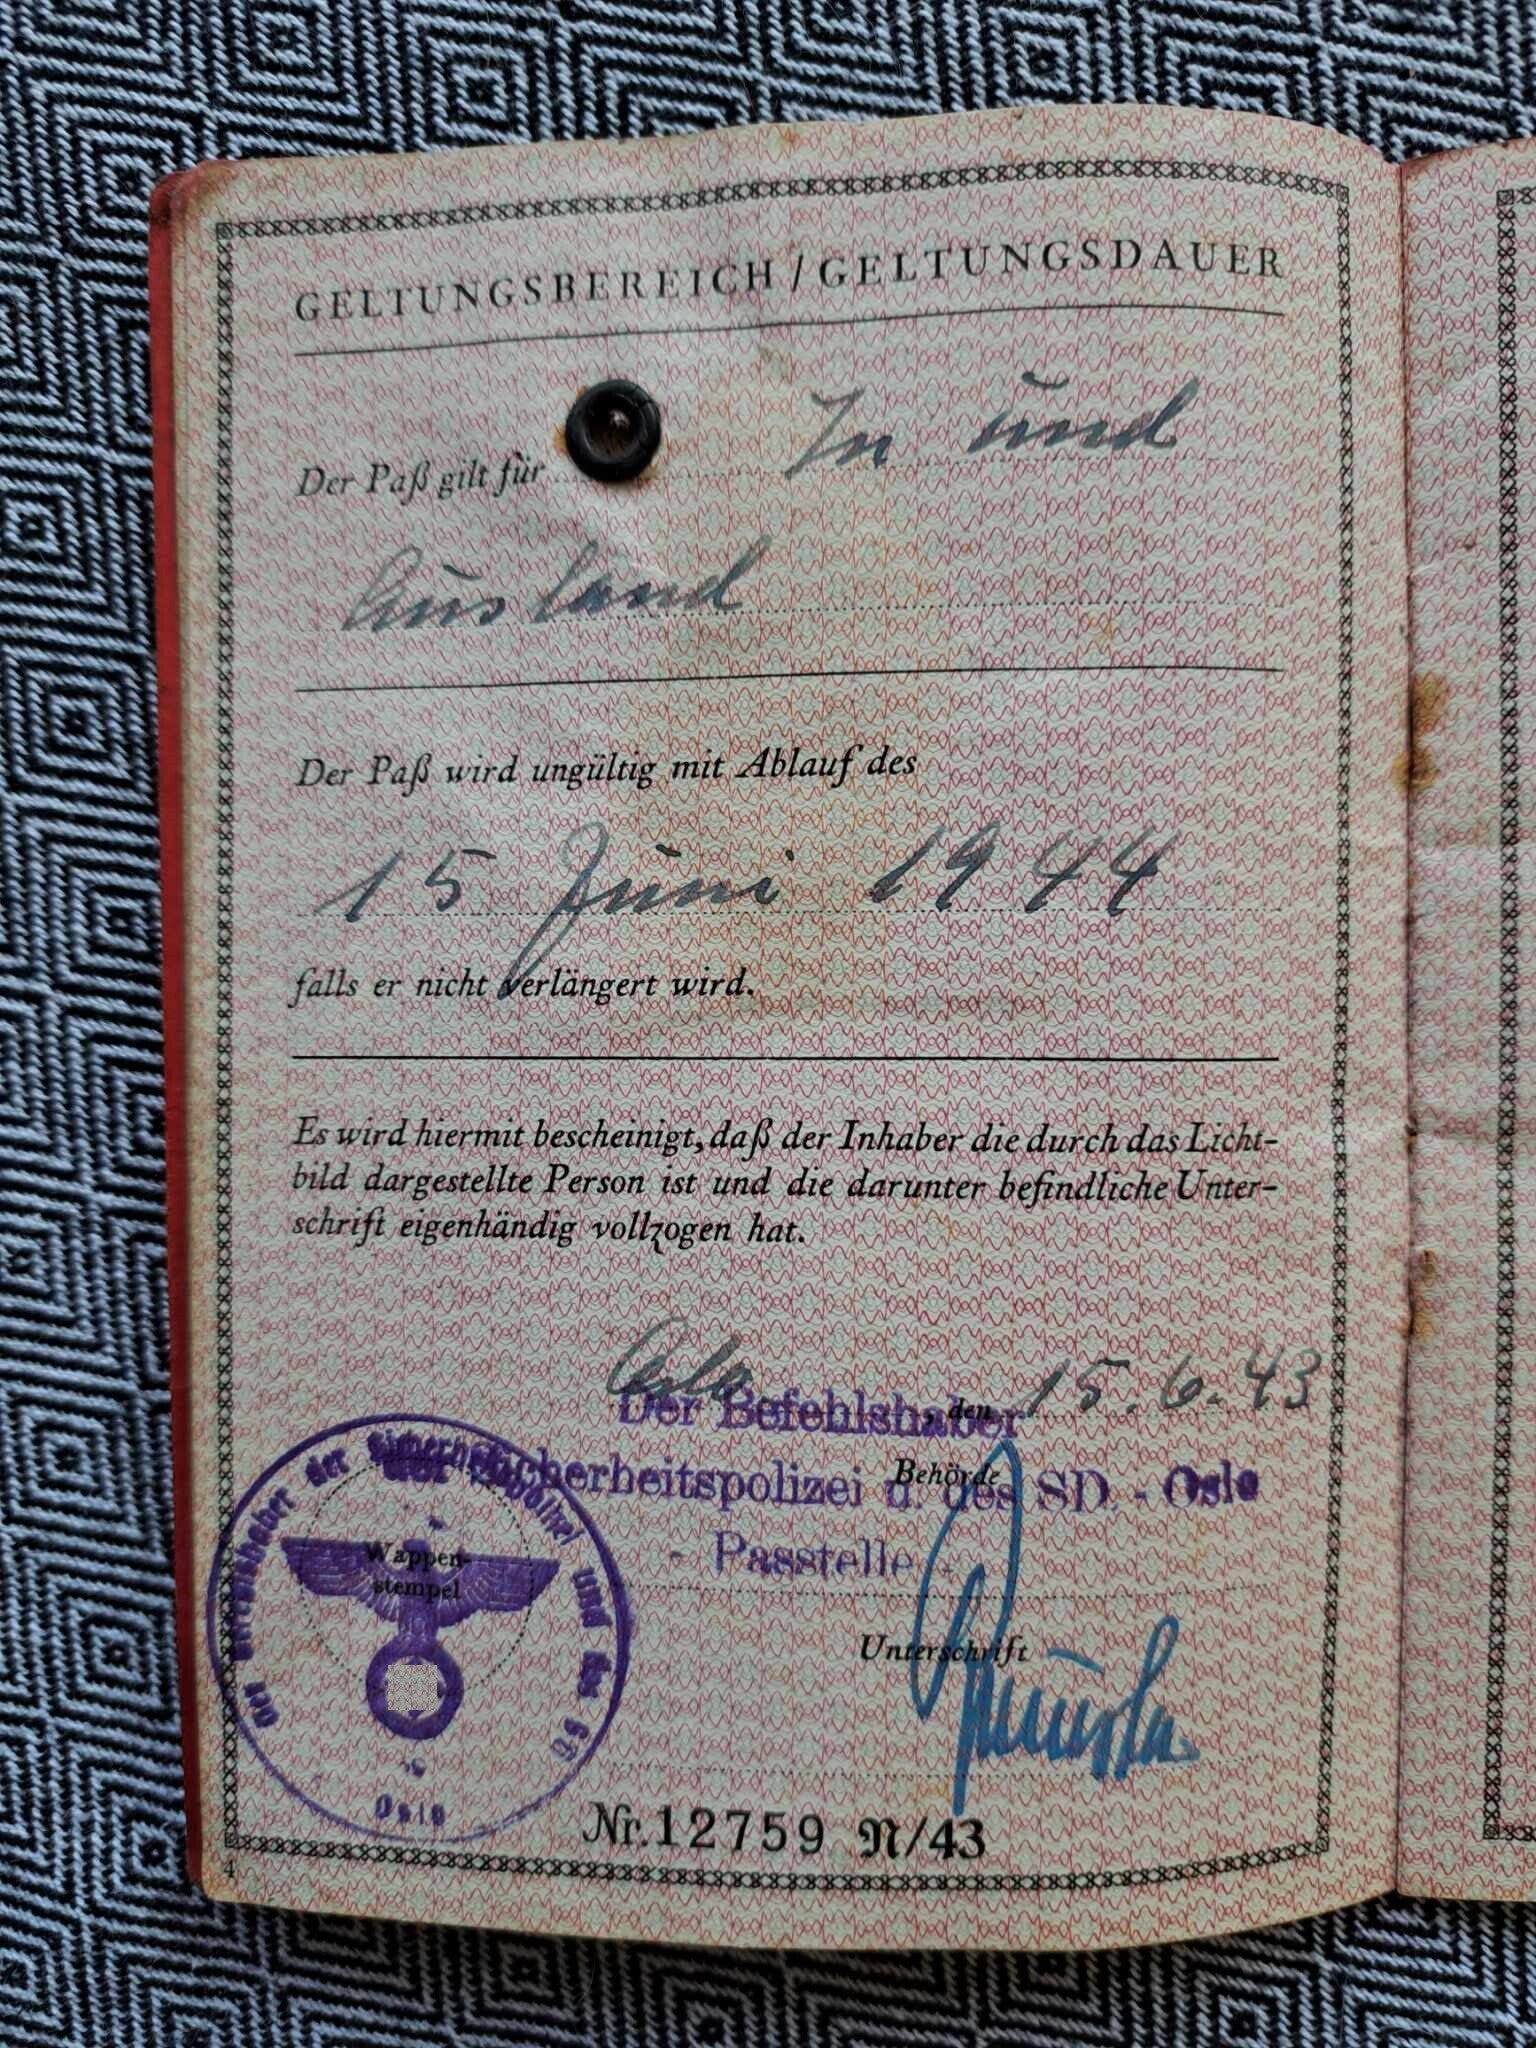 GELTUNGSBEREICH / GELTUNGSDAUER
Der Paß gilt für In und
Ausland
Der Paß wird ungültig mit Ablauf des
15 Juni 1944
falls er nicht verlängert wird.
Es wird hiermit bescheinigt, daß der Inhaber die durch das Licht-
bild dargestellte Person ist und die darunter befindliche Unter-
schrift eigenhändig vollzogen hat.
Oslo, den 15.6.43
Der Befehlshaber
der Sicherheitspolizei u. des SD. - Oslo
Behörde
- Passtelle -
Der Befehlshaber der Sicherheitspolizei und des SD
Wappen-
stempel
Oslo
Unterschrift
Nr. 12759 N/43
4